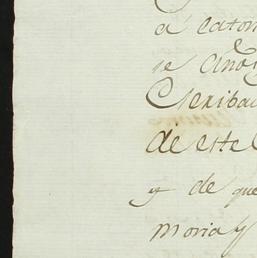 á caton
se
Escriba
de este
y de que
moria y